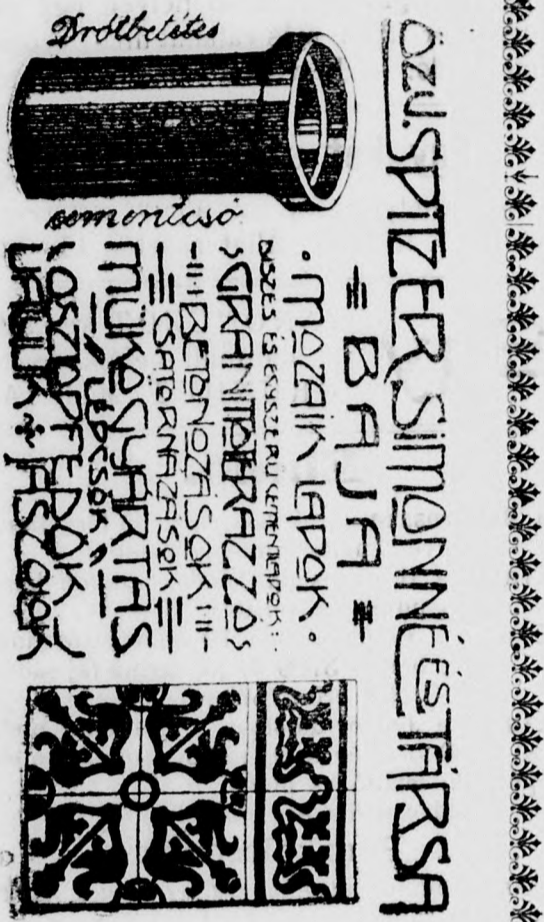 ÖZV. SPITZER SIMONNÉ ÉS TÁRSA
BAJA
MOZAIK LAPOK.
DISZES ÉS EGYSZERÜ CEMENTLAPOK
GRANITTERAZZO
BETONOZÁSOK
CSATORNÁZÁSOK
MÜKŐGYÁRTÁS
LÉPCSŐK
OSZLOPFEDŐK
VÁLUK JÁSZOLOK
Drótbetétes
cementcső